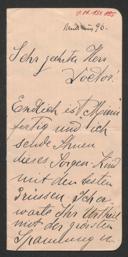 96.
Sehr geehrter Herr
Doctor!
Endlich ist
fertig und ich
sende Ihnen
dieses Sorgen Kind
mit den besten
Grüssen. Ich er
warte Ihr Urtheil
mit der grössten
Spannung u.